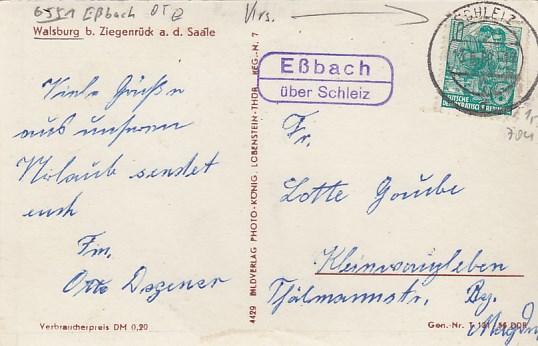 6551 Eßbach OT
Vrs.
SCHLEIZ
Walsburg b. Ziegenrück a. d. Saale
10
DEUTSCHE
DEMOKRATISCHE REPUBLIK
Eßbach
über Schleiz
704
Viele Grüße
aus unserem
Urlaub sendet
euch
Fam.
Otto Degener
4429 BILDVERLAG PHOTO-KÖNIG, LOBENSTEIN-THÜR. REG.-N. 7
Fr.
Lotte Goube
Kleinwanzleben
Thälmannstr.
Verbraucherpreis DM 0,20
Gen.-Nr.